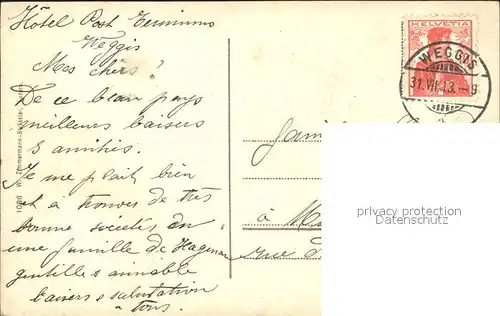 Hôtel Post Terminus
Weggis
Mes chers !
De ce beau pays
meilleurs baisers
& amitiés.
Je me plait bien
et à trouver de très
bonne sociétés
une famille de Hagenau
gentille & aimable
baisers & salutation
à tous.
1096 W. Zimmermann
HELVETIA
WEGGIS
31.VII.13.—9
à
rue
privacy protection